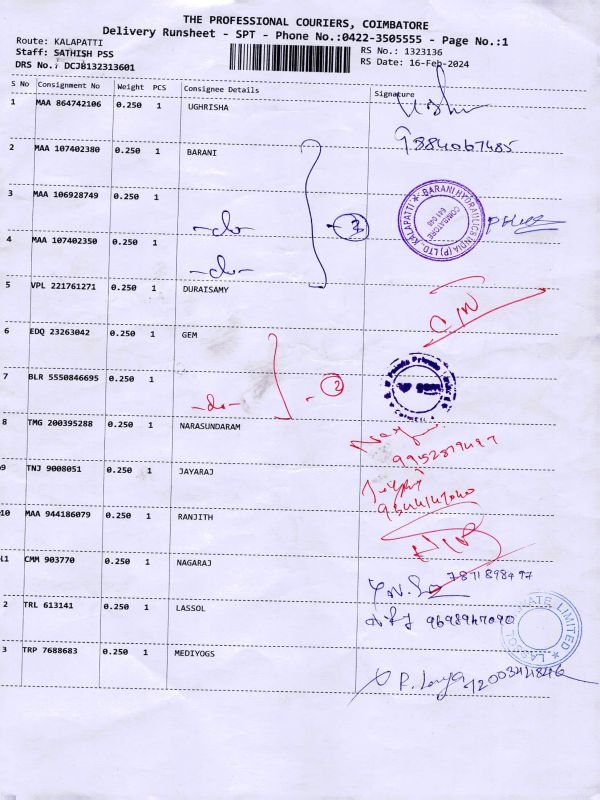 THE PROFESSIONAL COURIERS, COIMBATORE
Delivery Runsheet - SPT - Phone No.:0422-3505555 - Page No.:1
Route: KALAPATTI
Staff: SATHISH PSS
DRS No.: DCJ8132313601
RS No.: 1323136
RS Date: 16-Feb-2024
S No Consignment No Weight PCS Consignee Details Signature
1 MAA 864742106 0.250 1 UGHRISHA
9384067485
2 MAA 107402380 0.250 1 BARANI
3 MAA 106928749 0.250 1 -do- 3
BARANI HYDRAULICS INDIA (P) LTD., KALAPATTI * COIMBATORE
4 MAA 107402350 0.250 1 -do-
5 VPL 221761271 0.250 1 DURAISAMY
6 EDQ 23263042 0.250 1 GEM
7 BLR 5550846695 0.250 1 -do- 2
8 TMG 200395288 0.250 1 NARASUNDARAM
9 TNJ 9008051 0.250 1 JAYARAJ
10 MAA 944186079 0.250 1 RANJITH
11 CMM 903770 0.250 1 NAGARAJ 7871898497
2 TRL 613141 0.250 1 LASSOL 9698947090
LIMITED * LASSOL
3 TRP 7688683 0.250 1 MEDIYOGS